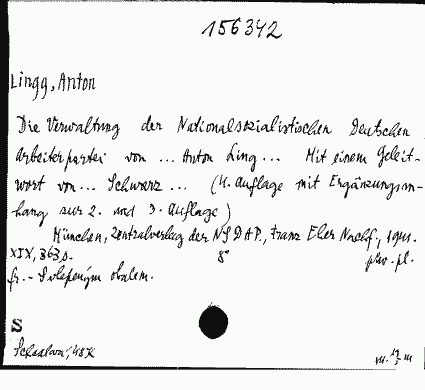 156342
Lingg, Anton
Die Verwaltung der Nationalsozialistischen Deutschen
Arbeiterpartei von ... Anton Ling ... Mit einem Geleit-
wort von ... Schwarz ... (4. Auflage mit Ergänzungsan-
hang zur 2. und 3. Auflage)
München, Zentralverlag der NSDAP., Franz Eher Nachf., 1941.
XIX, 363 s. 8°
fr. - S obalem.
S